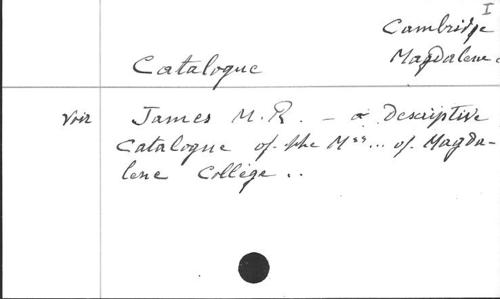 I
Cambridge
Magdalene.
Catalogue
Voir James M. R. – a descriptive
Catalogue of the Mss... of Magda-
lene College ..